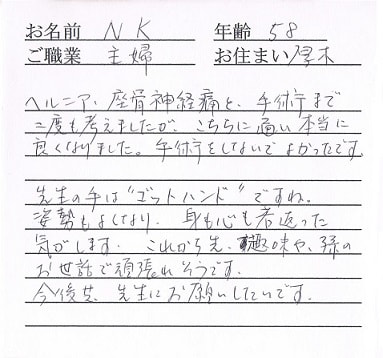 お名前 N K 年齢 58
ご職業 主婦 お住まい 厚木
ヘルニア、座骨神経痛を、手術まで
二度も考えましたが、こちらに通い本当に
良くなりました。手術をしないでよかったです
先生の手は"ゴットハンド"ですね。
姿勢もよくなり、身も心も若返った
気がします。これから先、趣味や、孫の
お世話で頑張れそうです。
今後共、先生にお願いしたいです。